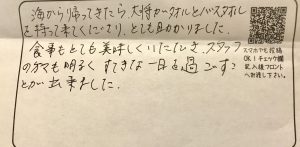 海から帰ってきたら、大将がタオルとバスタオル
を持って来てくださり、とても助かりました。
食事もとても美味しくいただき、スタッフ
の方々も明るく すてきな一日を過ごすこ
とが出来ました。
スマホでも投稿
OK！チェック欄
記入後フロント
へお渡し下さい。